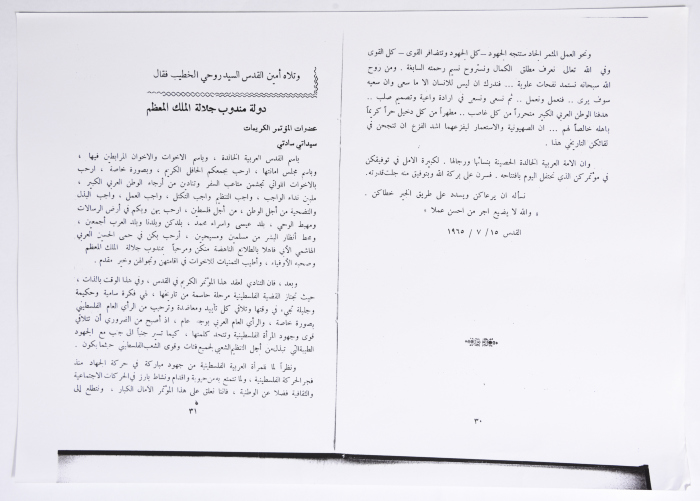 ونحو العمل المثمر الجاد ستتجه الجهود – كل الجهود وتتضافر القوى – كل القوى
وفي الله تعالى نعرف مطلق الكمال ونستروح نسيم رحمته السابغة . ومن روح
الله سبحانه نستمد نفحات علوية ... فندرك ان ليس للانسان الا ما سعى وان سعيه
سوف يرى .. فنعمل ونعمل .. ثم نسعى ونسعى في ارادة واعية وتصميم صلب ..
هدفنا الوطن العربي الكبير متحرراً من كل غاصب .. مطهراً من كل دخيل حراً كريماً
باهله خالصاً لهم ... ان الصهيونية والاستعمار ليفزعهما اشد الفزع ان تنجحن في
لقائكن التاريخي هذا .
وان الامة العربية الخالدة الحصينة بنسائها ورجالها . لكبيرة الامل في توفيقكن
في مؤتمركن الذي نحتفل اليوم بافتتاحه . فسرن على بركة الله وبتوفيق منه جلت قدرته .
نسأله ان يرعاكن ويسدد على طريق الخير خطاكن .
« والله لا يضيع اجر من احسن عملا »
القدس ١٥ / ٧ / ١٩٦٥
٣٠
وتلاه أمين القدس السيد روحي الخطيب فقال
دولة مندوب جلالة الملك المعظم
عضوات المؤتمر الكريمات
سيداتي سادتي
باسم القدس العربية الخالدة ، وباسم الاخوات والاخوان المرابطين فيها ،
وباسم مجلس امانتها ، ارحب بجمعكم الحافل الكريم ، وبصورة خاصة ، ارحب
بالاخوات اللواتي تجشمن متاعب السفر وتنادين من أرجاء الوطن العربي الكبير ،
ملبين نداء الواجب ، واجب التنظيم واجب التكتل ، واجب العمل ، واجب البذل
والتضحية من أجل الوطن ، من أجل فلسطين ، ارحب بهن وبكم في أرض الرسالات
ومهبط الوحي ، بلد عيسى واسراء محمد ، بلدكن وبلدنا وبلد العرب أجمعين ،
ومحط أنظار البشر من مسلمين ومسيحيين . أرحب بكن في حمى الحسين العربي
الهاشمي الآبي فأهلا بالطلائع الناهضة منكن ومرحباً بمندوب جلالة الملك المعظم
وصحبه الأوفياء ، وأطيب التمنيات للاخوات في اقامتهن وتجوالهن وخير مقدم .
وبعد ، فان التنادي لعقد هذا المؤتمر الكريم في القدس ، وفي هذا الوقت بالذات ،
حيث تجتاز القضية الفلسطينية مرحلة حاسمة من تاريخها ، لهي فكرة سامية وحكيمة
وجليلة تجيء في وقتها وتلاقي كل تأييد ومعاضدة وترحيب من الرأي العام الفلسطيني
بصورة خاصة ، والرأي العام العربي بوجه عام ، اذ أصبح من الضروري أن تتلاقي
قوى وجهود المرأة الفلسطينية وتتحد كلمتها ، كيما تسير جنباً الى جب مع الجهود
الطيبة التي تبذل من أجل التنظيم الشعبي لجميع فئات وقوى الشعب الفلسطيني حيثما يكون .
ونظراً لما للمرأة العربية الفلسطينية من جهود مباركة في حركة الجهاد منذ
فجر الحركة الفلسطينية ، ولما تتمتع به من حيوية واقدام ونشاط بارز في الحركات الاجتماعية
والثقافية فضلا عن الوطنية ، فاننا نعلق على هذا المؤتمر الآمال الكبار ، ونتطلع إلى
٣١